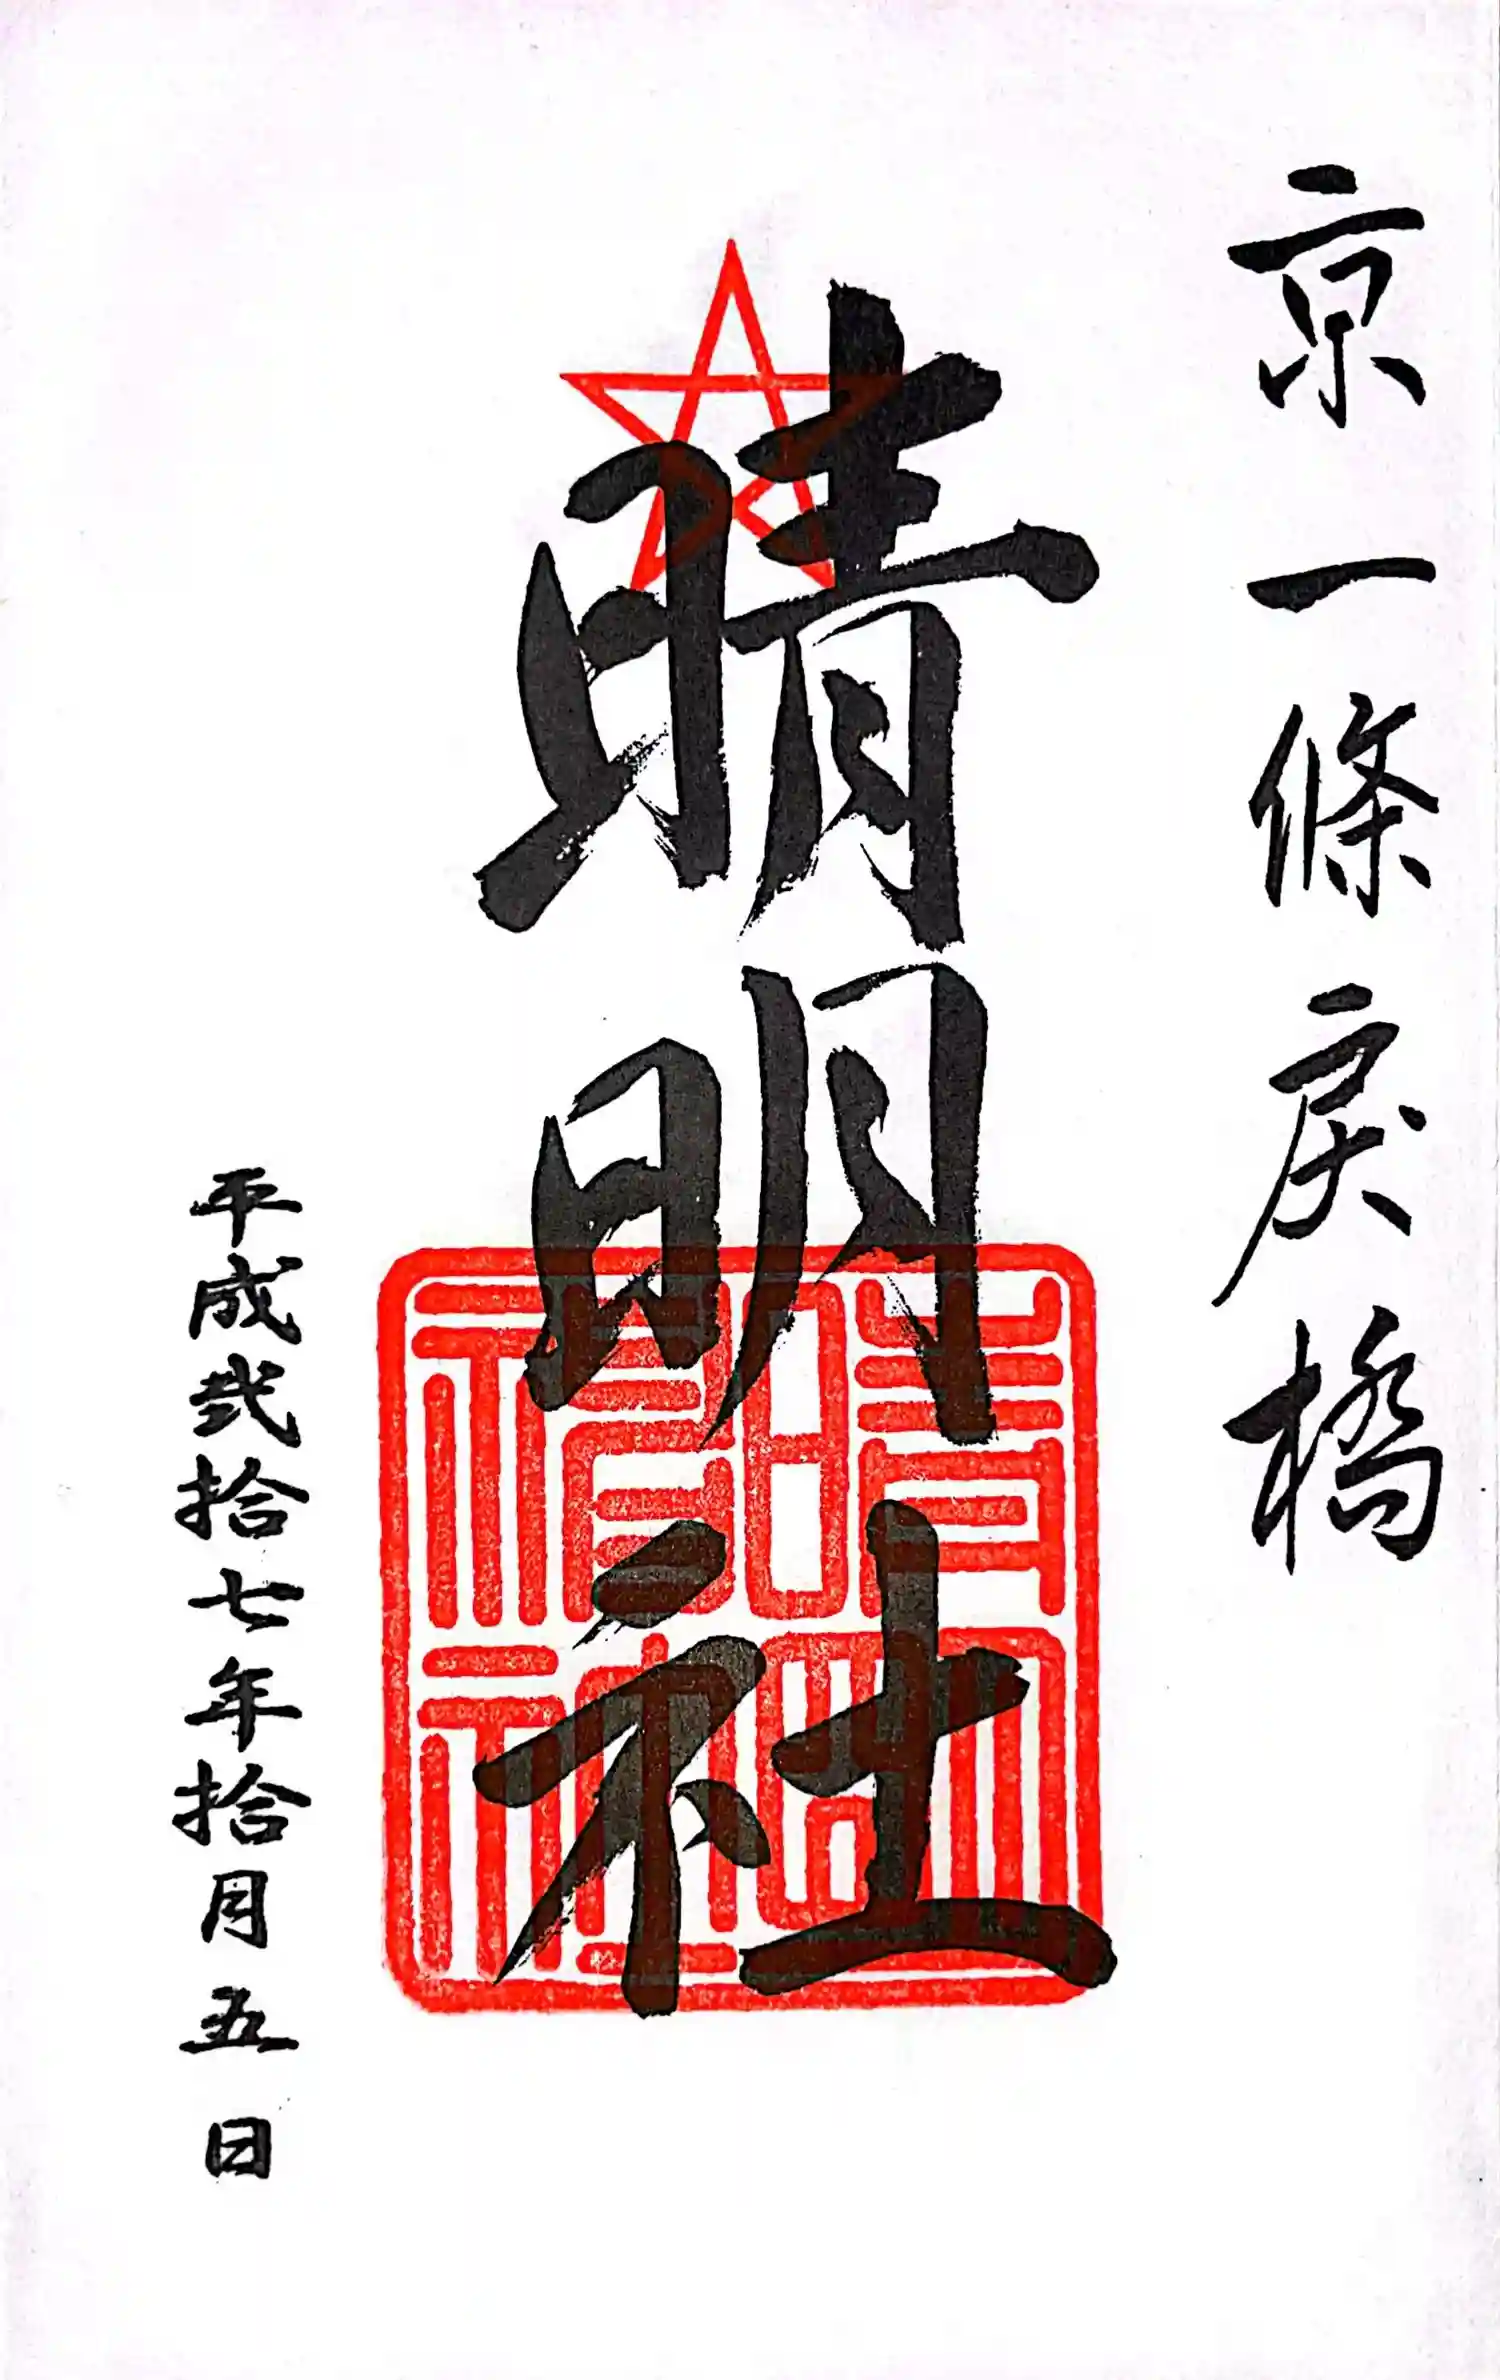 京一條戻橋
晴明社
晴明神社
平成弐拾七年拾月五日